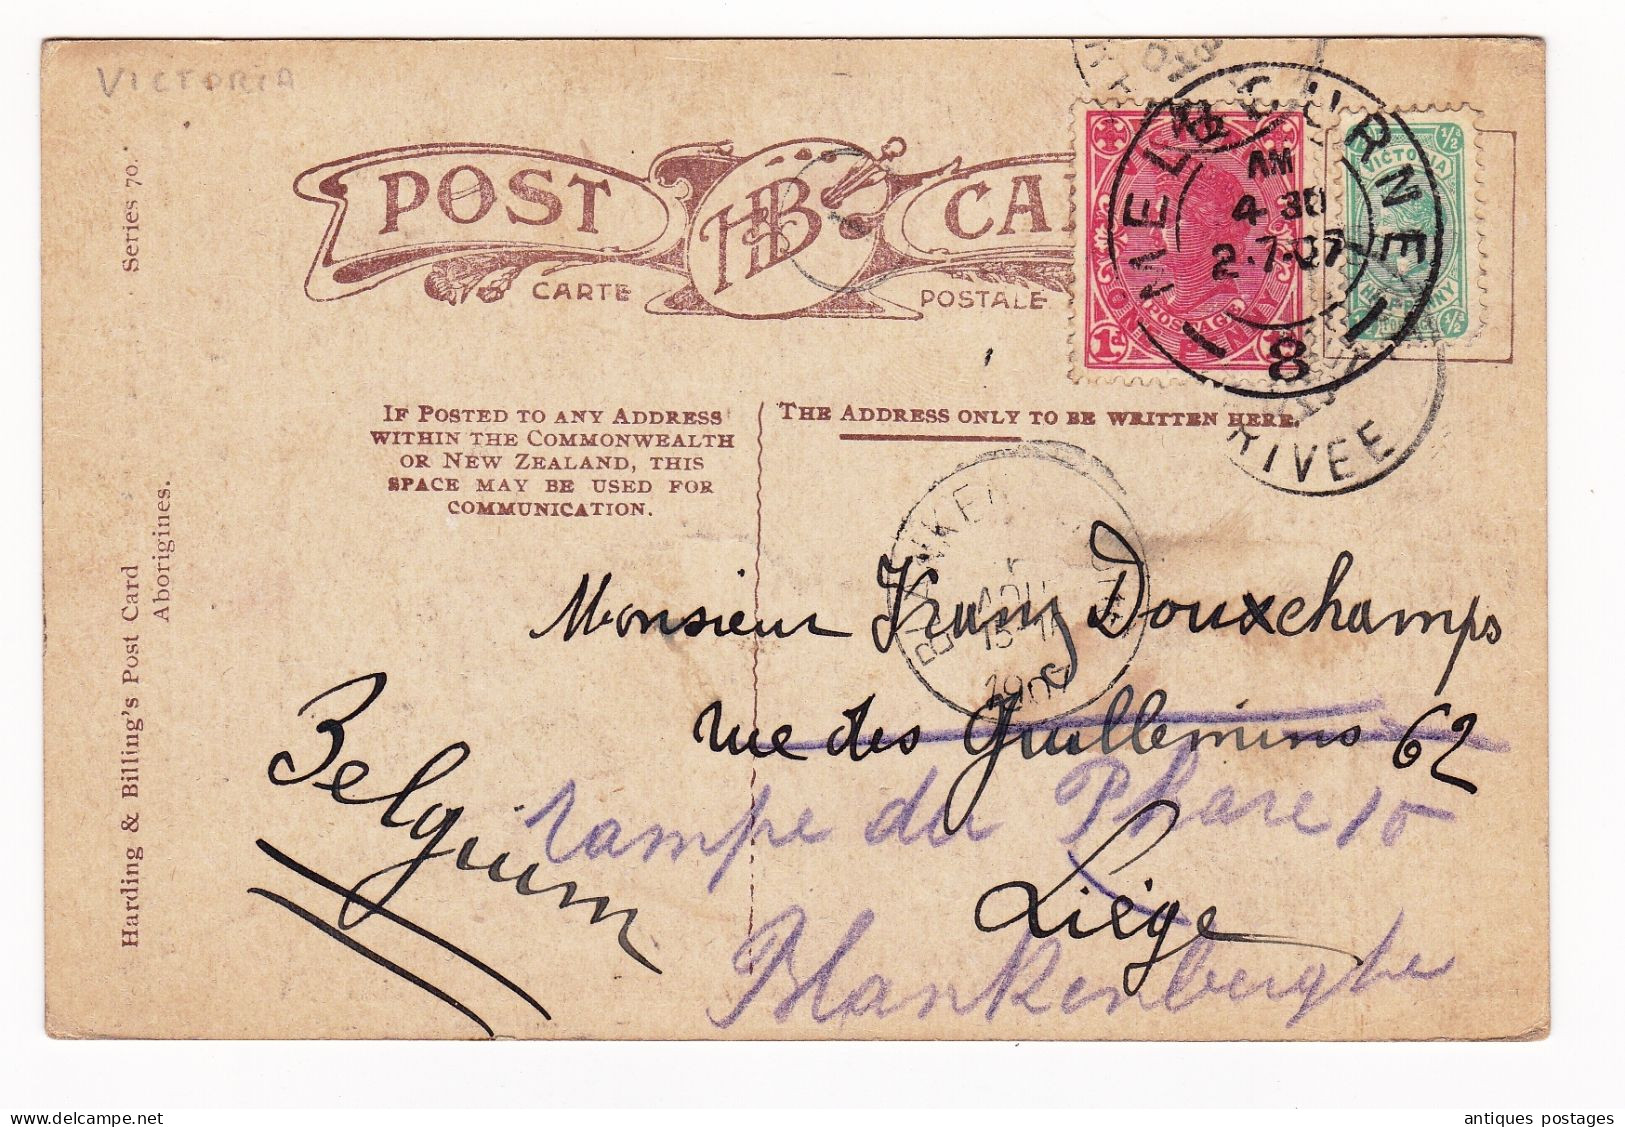 VICTORIA
POST CA
HB
CARTE POSTALE
MELBOURNE
AM
4 30
2·7·07
8
VICTORIA
½d ½d
HALFPENNY
POSTAGE
ONE PENNY
1d 1d
RIVEE
IF POSTED TO ANY ADDRESS
WITHIN THE COMMONWEALTH
OR NEW ZEALAND, THIS
SPACE MAY BE USED FOR
COMMUNICATION.
THE ADDRESS ONLY TO BE WRITTEN HERE.
1907
Monsieur Franz Douxchamps
rue des Guillemins 62
Liége
Belgium
rampe du Phare 10
Blankenberghe
Harding & Billing's Post Card Series 70.
Aborigines.
antiques postages